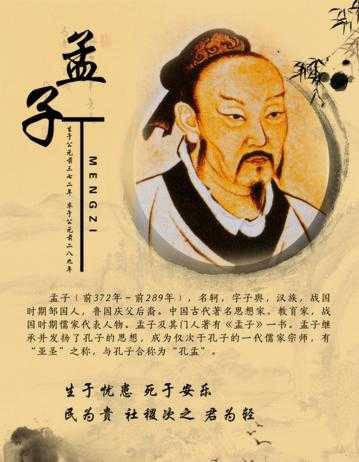 孟子
MENGZI
生于公元前三七二年 卒于公元前二八九年
孟子（前372年－前289年），名轲，字子舆，汉族，战国
时期邹国人，鲁国庆父后裔。中国古代著名思想家、教育家，战
国时期儒家代表人物。孟子及其门人著有《孟子》一书。孟子继
承并发扬了孔子的思想，成为仅次于孔子的一代儒家宗师，有
“亚圣”之称，与孔子合称为“孔孟”。
生于忧患 死于安乐
民为贵 社稷次之 君为轻